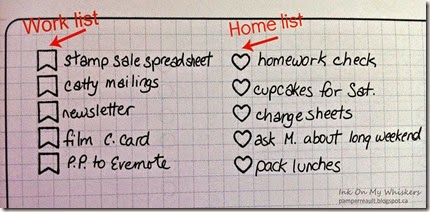 Work list
stamp sale spreadsheet
catty mailings
newsletter
film C. card
P.P. to Evernote
Home list
homework check
cupcakes for Sat.
change sheets
ask M. about long weekend
pack lunches
Ink On My Whiskers
pamperreault.blogspot.ca